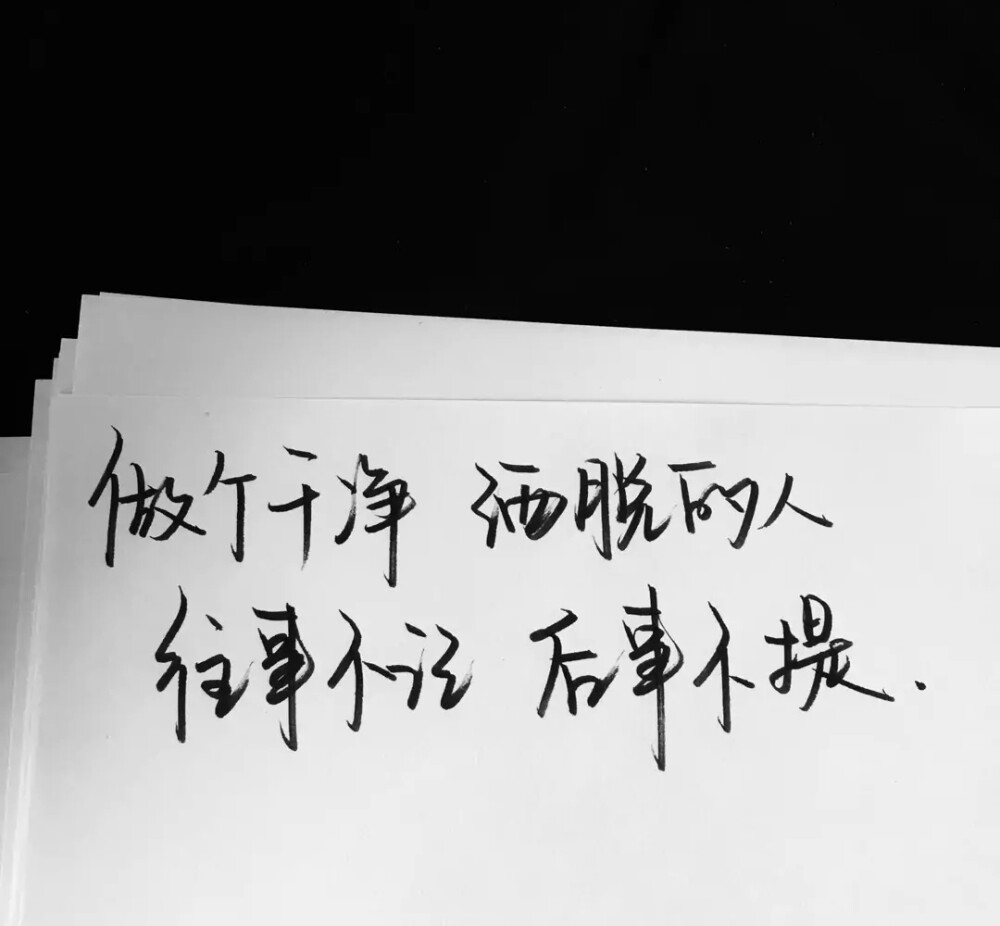 做个干净 洒脱的人
往事不记 后事不提.